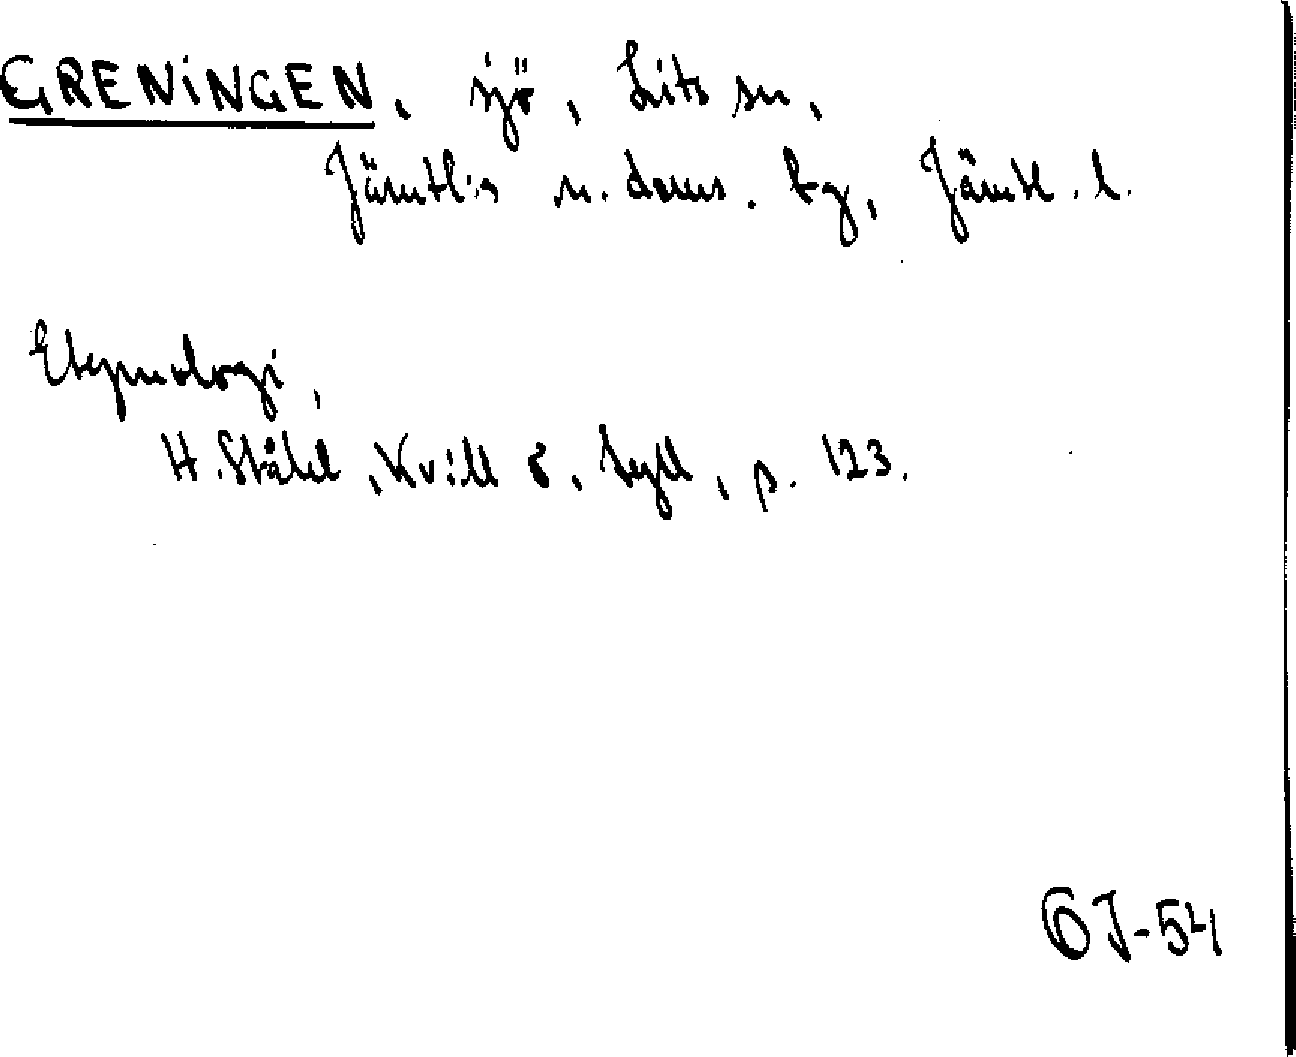 GRENINGEN, sjö, Lits sn,
Jämtl:s n. doms. tg, Jämtl. l.
Etymologi,
H. Ståhl, Kvill o. Tyll, p. 123.
ÖJ-54